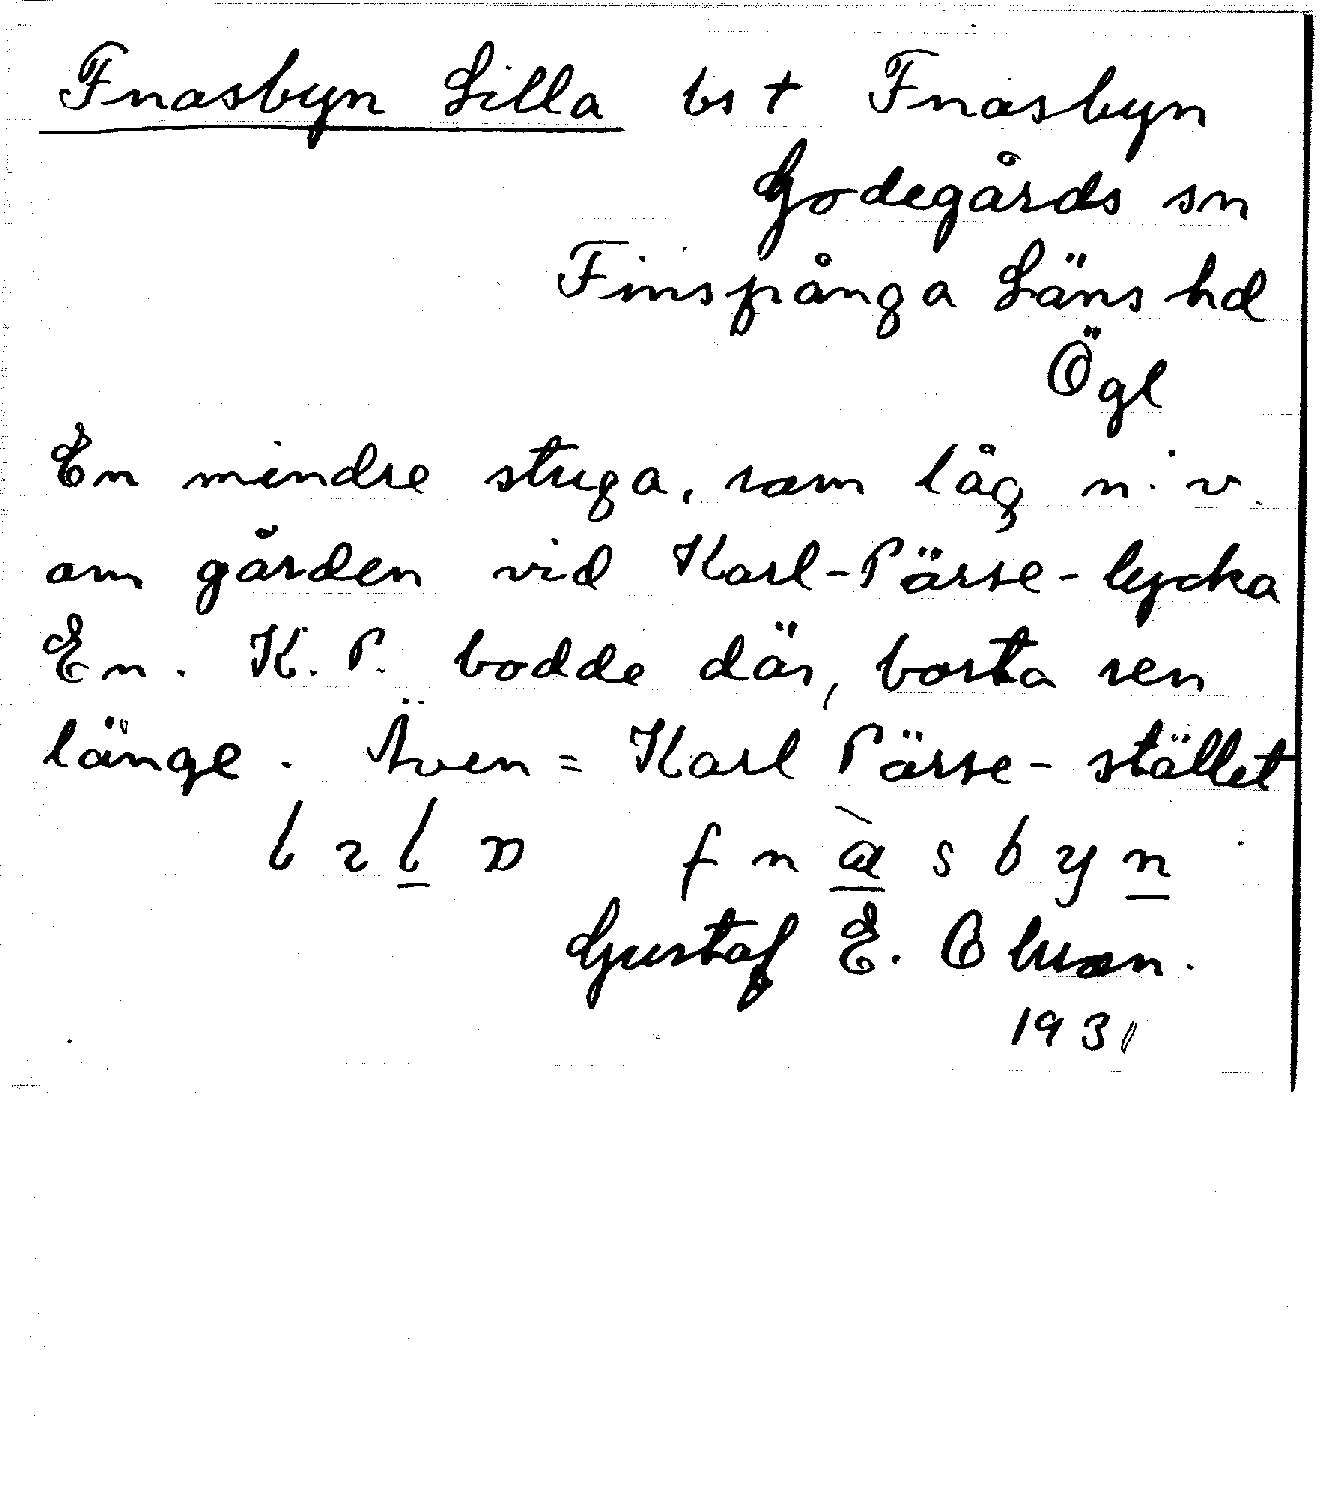 Fnasbyn Lilla bs † Fnasbyn
Godegårds sn
Finspånga Läns hd
Ögl
En mindre stuga, som låg n. v.
om gården vid Karl-Pärse-lycka
En. K. P. bodde där, borta sen
länge. Även = Karl Pärse-stället
fnàsbyn
Gustaf E. Olsson.
1931